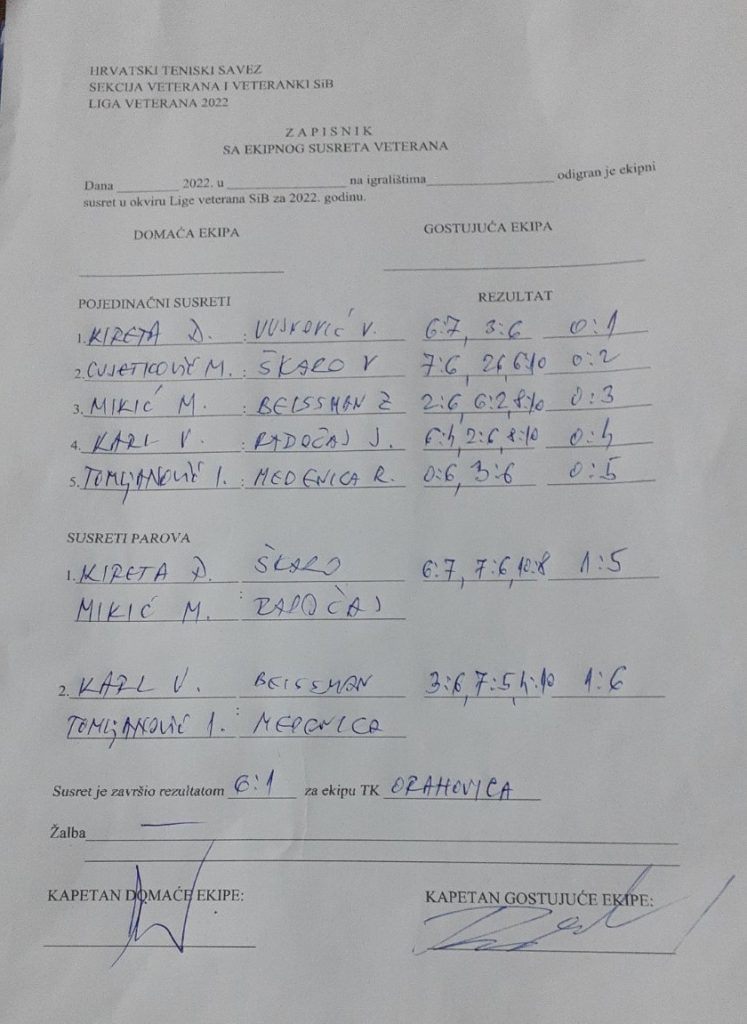 HRVATSKI TENISKI SAVEZ
SEKCIJA VETERANA I VETERANKI SiB
LIGA VETERANA 2022
ZAPISNIK
SA EKIPNOG SUSRETA VETERANA
Dana ________ 2022. u ______________ na igralištima______________ odigran je ekipni
susret u okviru Lige veterana SiB za 2022. godinu.
DOMAĆA EKIPA GOSTUJUĆA EKIPA
POJEDINAČNI SUSRETI REZULTAT
1. KIRETA D. : VUJKOVIĆ V. 6:7, 3:6 0:1
2. CVJETKOVIĆ M. : ŠKARO V 7:6, 26, 6:10 0:2
3. MIKIĆ M. : BEISSMAN Z 2:6, 6:2, 8:10 0:3
4. KARL V. : RADOČAJ J. 6:4, 2:6, 8:10 0:4
5. TOMLJANOVIĆ I. : MEDENICA R. 0:6, 3:6 0:5
SUSRETI PAROVA
1. KIRETA D. ŠKARO 6:7, 7:6, 10:8 1:5
MIKIĆ M. : RADOČAJ
2. KARL V. BEISSMAN 3:6, 7:5, 4:10 1:6
TOMLJANOVIĆ I. : MEDENICA
Susret je završio rezultatom 6:1 za ekipu TK ORAHOVICA
Žalba —
KAPETAN DOMAĆE EKIPE: KAPETAN GOSTUJUĆE EKIPE: